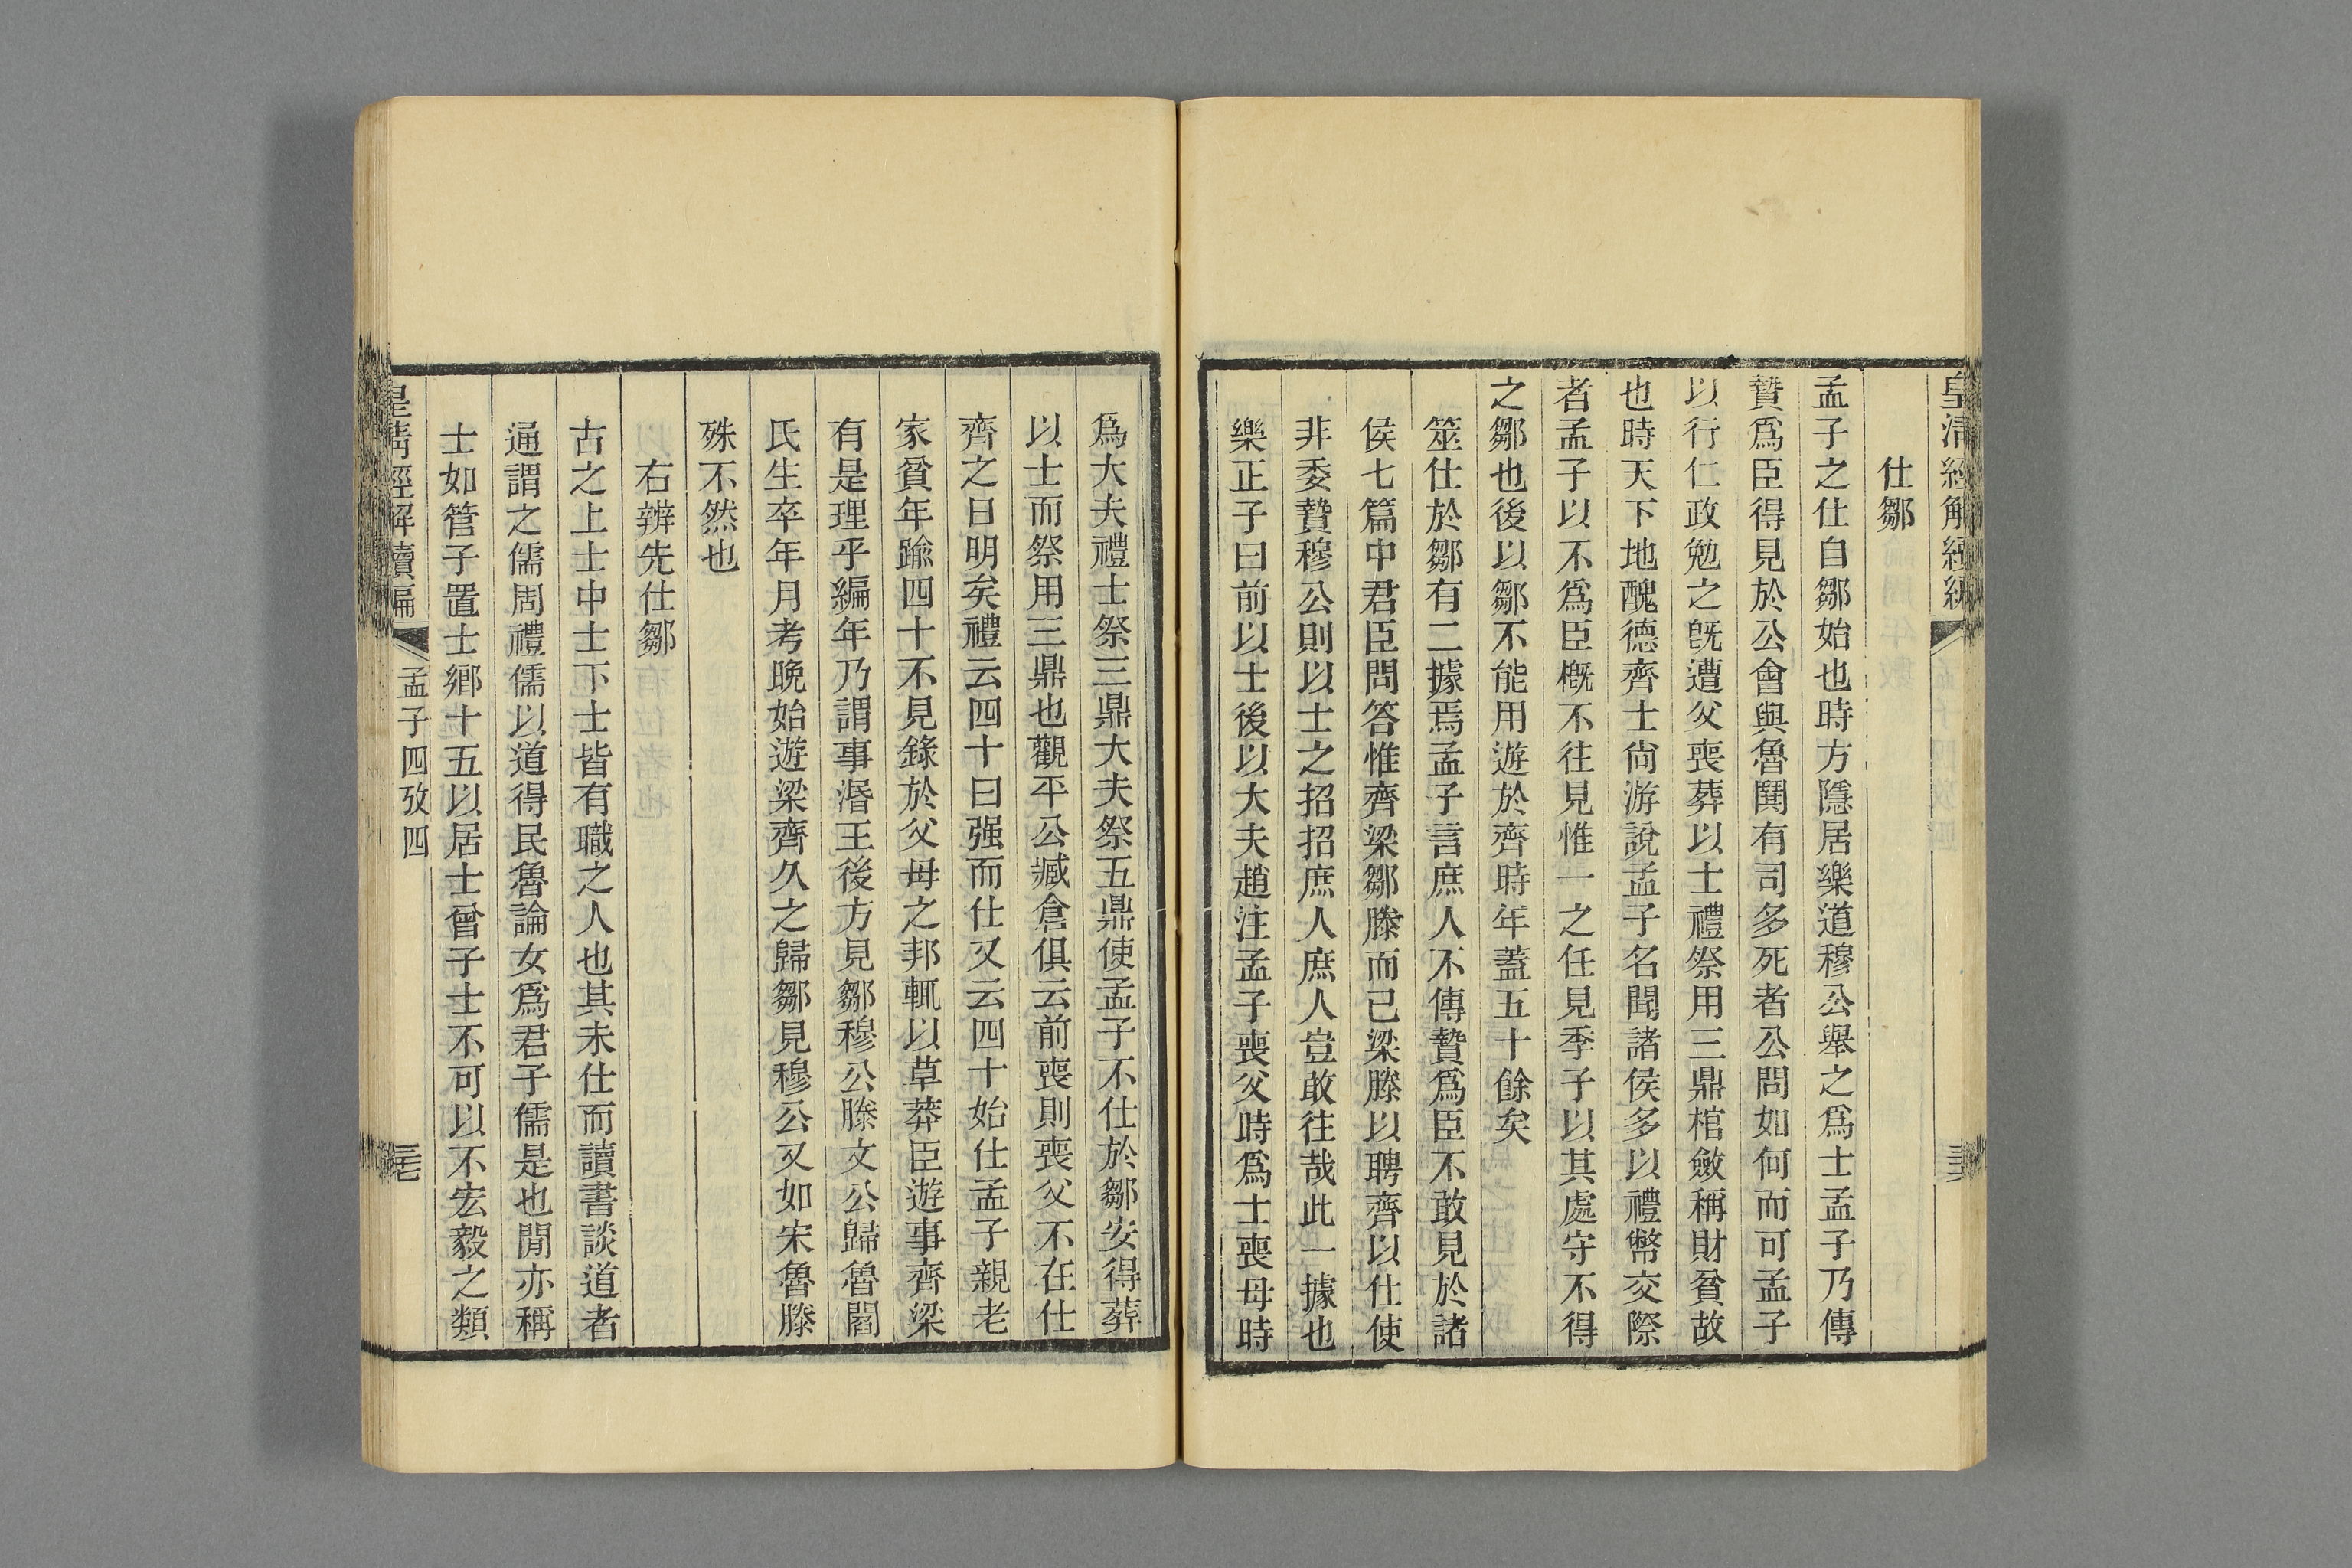 皇清經解續編
仕鄒
孟子之仕自鄒始也時方隱居樂道穆公舉之爲士孟子乃傳
贄爲臣得見於公會與魯鬨有司多死者公問如何而可孟子
以行仁政勉之旣遭父喪葬以士禮祭用三鼎棺斂稱財貧故
也時天下地醜德齊士尙游說孟子名聞諸侯多以禮幣交際
者孟子以不爲臣槪不往見惟一之任見季子以其處守不得
之鄒也後以鄒不能用遊於齊時年蓋五十餘矣
筮仕於鄒有二據焉孟子言庶人不傳贄爲臣不敢見於諸
侯七篇中君臣問答惟齊梁鄒滕而已梁滕以聘齊以仕使
非委贄穆公則以士之招招庶人庶人豈敢往哉此一據也
樂正子曰前以士後以大夫趙注孟子喪父時爲士喪母時
爲大夫禮士祭三鼎大夫祭五鼎使孟子不仕於鄒安得葬
以士而祭用三鼎也觀平公臧倉俱云前喪則喪父不在仕
齊之日明矣禮云四十曰强而仕又云四十始仕孟子親老
家貧年踰四十不見錄於父母之邦輒以草莽臣遊事齊梁
有是理乎編年乃謂事湣王後方見鄒穆公滕文公歸魯閻
氏生卒年月考晚始遊梁齊久之歸鄒見穆公又如宋魯滕
殊不然也
右辨先仕鄒
古之上士中士下士皆有職之人也其未仕而讀書談道者
通謂之儒周禮儒以道得民魯論女爲君子儒是也閒亦稱
士如管子置士鄉十五以居士曾子士不可以不宏毅之類
皇淸經解續編
孟子四攷四